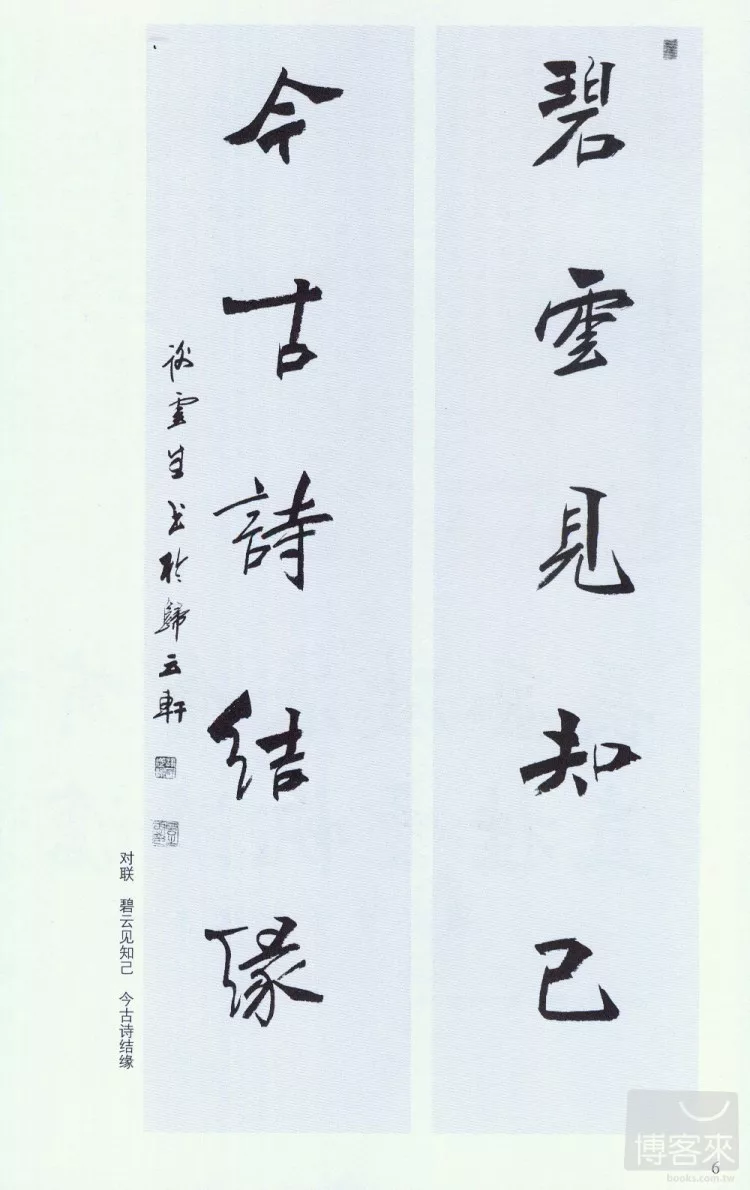 碧雲見知己
今古詩結緣
谢雲生书於歸云軒
对联 碧云见知己 今古诗结缘
博客來
books.com.tw
6